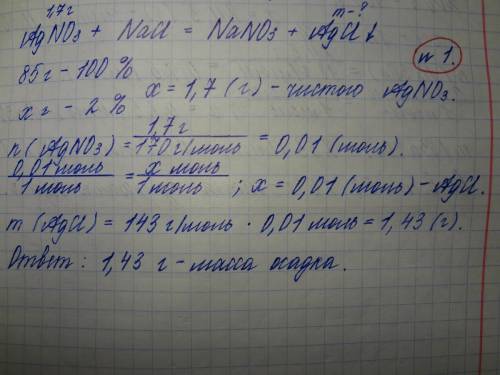 1,7 г m - ?
AgNO3 + NaCl = NaNO3 + AgCl ↓
n 1.
85 г - 100 %
x г - 2 %
x = 1,7 (г) - чистого AgNO3.
n (AgNO3) = 1,7 г / 170 г/моль = 0,01 (моль).
0,01 моль / 1 моль = x моль / 1 моль ; x = 0,01 (моль) - AgCl.
m (AgCl) = 143 г/моль · 0,01 моль = 1,43 (г).
Ответ : 1,43 г - масса осадка.